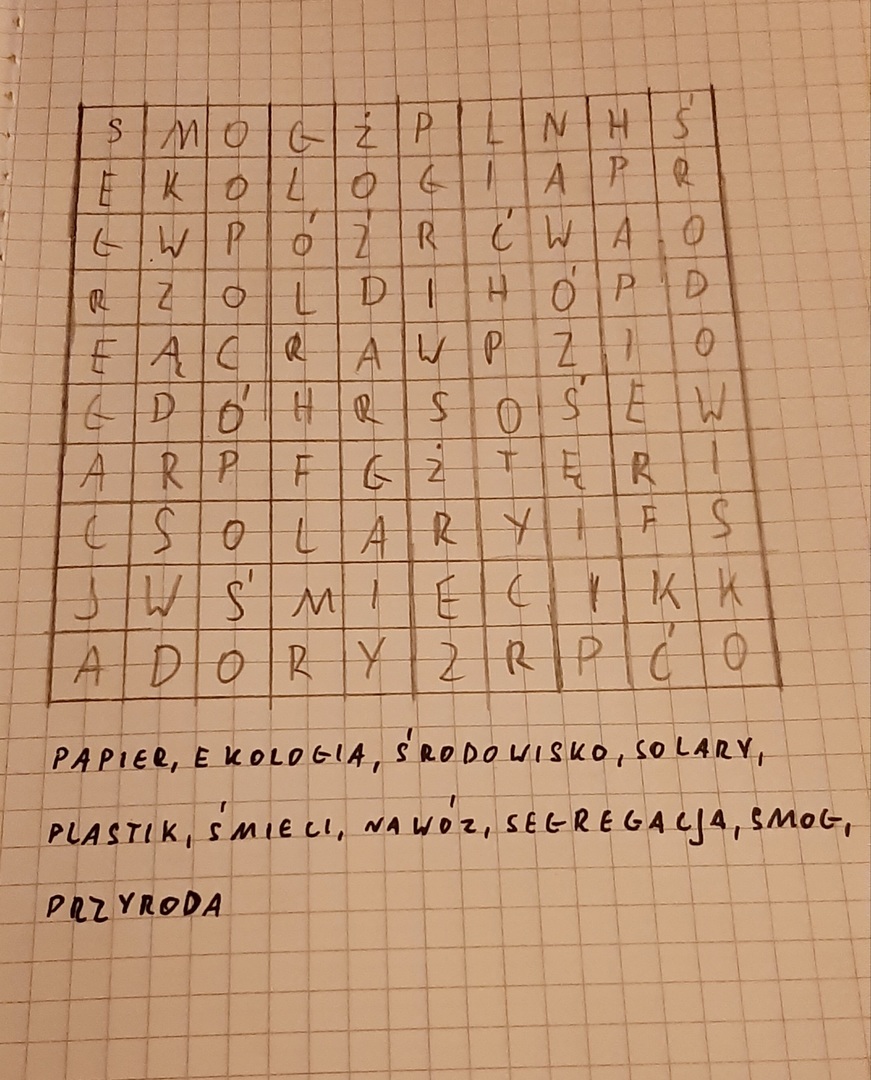 S M O G Ż P L N H Ś
E K O L O G I A P R
G W P Ó Ź R Ć W A O
R Z O L D I H Ó P D
E Ą C R A W P Z I O
G D Ó H R S O Ś E W
A R P F G Ż T Ę R I
C S O L A R Y I F S
J W Ś M I E C I K K
A D O R Y Z R P Ć O
PAPIER, EKOLOGIA, ŚRODOWISKO, SOLARY,
PLASTIK, ŚMIECI, NAWÓZ, SEGREGACJA, SMOG,
PRZYRODA